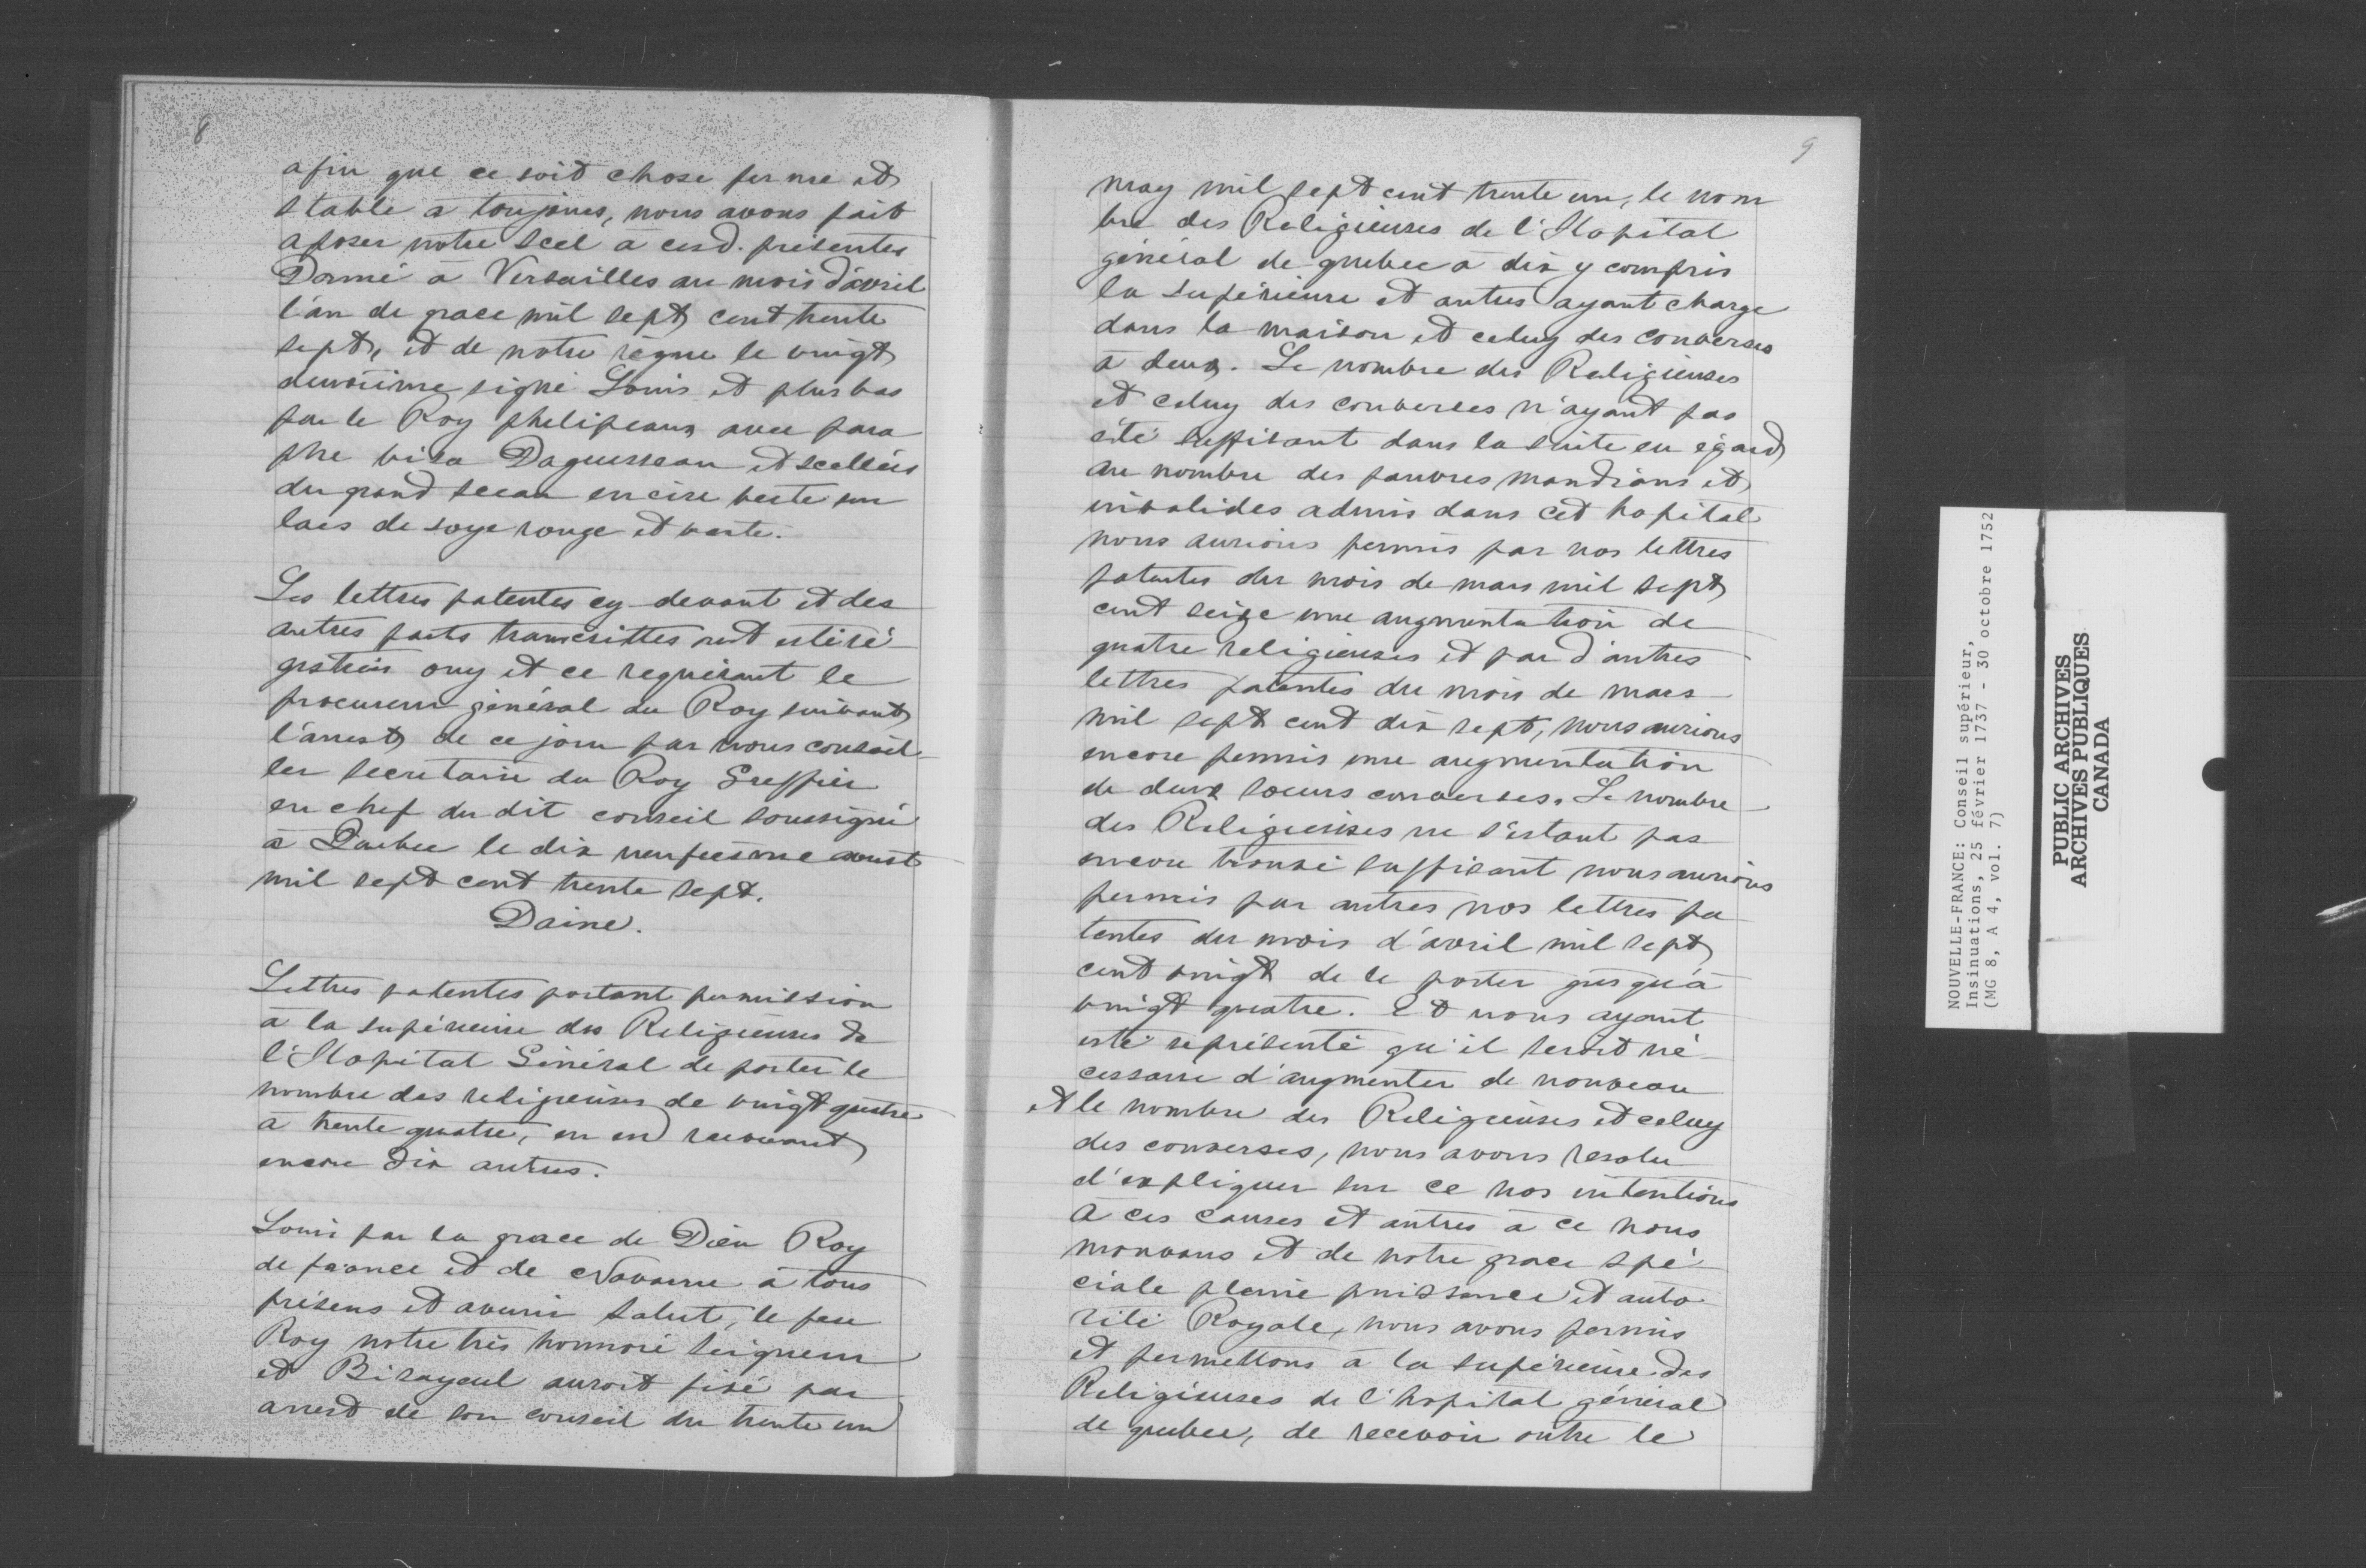 8
afin que ce soit chose ferme et
stable a toujours, nous avons fait
aposer notre scel a cesd. présentes
Donné à Versailles au mois d'avril
l'an de grace mil sept cent trente
sept, et de notre règne le vingt
deuxiime signé Louis et plus bas
par le Roy phelipeaux avec para
phe visa Daguesseau et scellées
du grand sceau en cire verte sur
lacs de soye rouge et verte.
Les lettres patentes cy-devant et des
autres parts transcrittes ont esté ré
gistrées ouy et ce requérant le
procureur général du Roy suivant
l'arrest de ce jour par nous conseil
ler secretaire du Roy Greffier
en chef du dit conseil soussigné
à Quebec le dix neufiesme aoust
mil sept cent trente sept.
Daine.
Lettres patentes portant permission
à la supérieure des Religieuses de
l'Hopital Général de porter le
nombre des religieuses de vingt quatre
à trente quatre, en en recevant
encore dix autres.
Louis par la grace de Dieu Roy
de france et de Navarre à tous
présens et avenir salut, le feu
Roy notre très honnoré seigneur
et Bisayeul auroit fixé par
arrest de son conseil du trente un
9
may mil sept cent trente un, le nom
bre des Religieuses de l'Hopital
général de quebec a dix y compris
la supérieure et autres ayant charge
dans la maison et celuy des converses
à deux. Le nombre des Religieuses
et celuy des converses n'ayant pas
été suffisant dans la suite eu égard
au nombre des pauvres mandians et
invalides admis dans cet hopital
nous aurions permis par nos lettres
patentes du mois de mars mil sept
cent seize une augmentation de
quatre religieuses et par d'autres
lettres patentes du mois de mars
mil sept cent dix sept, nous aurions
encore permis une augmentation
de deux soeurs converses. Le nombre
des Religieuses ne s'estant pas
encore trouvé suffisant nous aurions
permis par autres nos lettres pa
tentes du mois d'avril mil sept
cent vingt de le porter jusqu'à
vingt quatre. Et nous ayant
esté représenté qu'il seroit né
cessaire d'augmenter de nouveau
et le nombre des Religieuses et celuy
des converses, nous avons resolu
d'expliquer sur ce nos intentions
A ces causes et autres à ce nous
mouvans et de notre grace spé
ciale pleine puissance et auto
rité Royale, nous avons permis
et permettons à la supérieure des
Religieuses de l'hopital général
de quebec, de recevoir outre le
NOUVELLE-FRANCE: Conseil supérieur,
Insinuations, 25 février 1737 - 30 octobre 1752
(MG 8, A 4, vol. 7)
PUBLIC ARCHIVES
ARCHIVES PUBLIQUES
CANADA